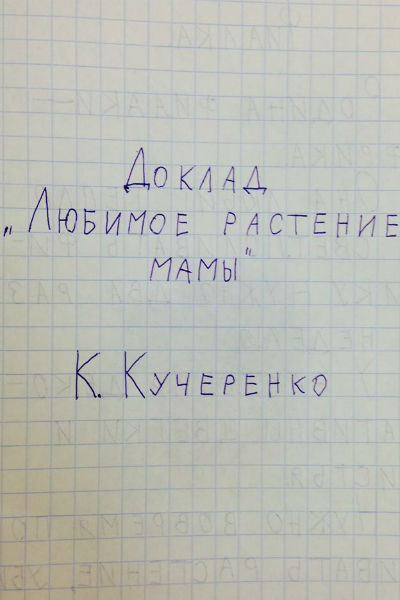 Доклад
„Любимое растение
мамы"
К. Кучеренко